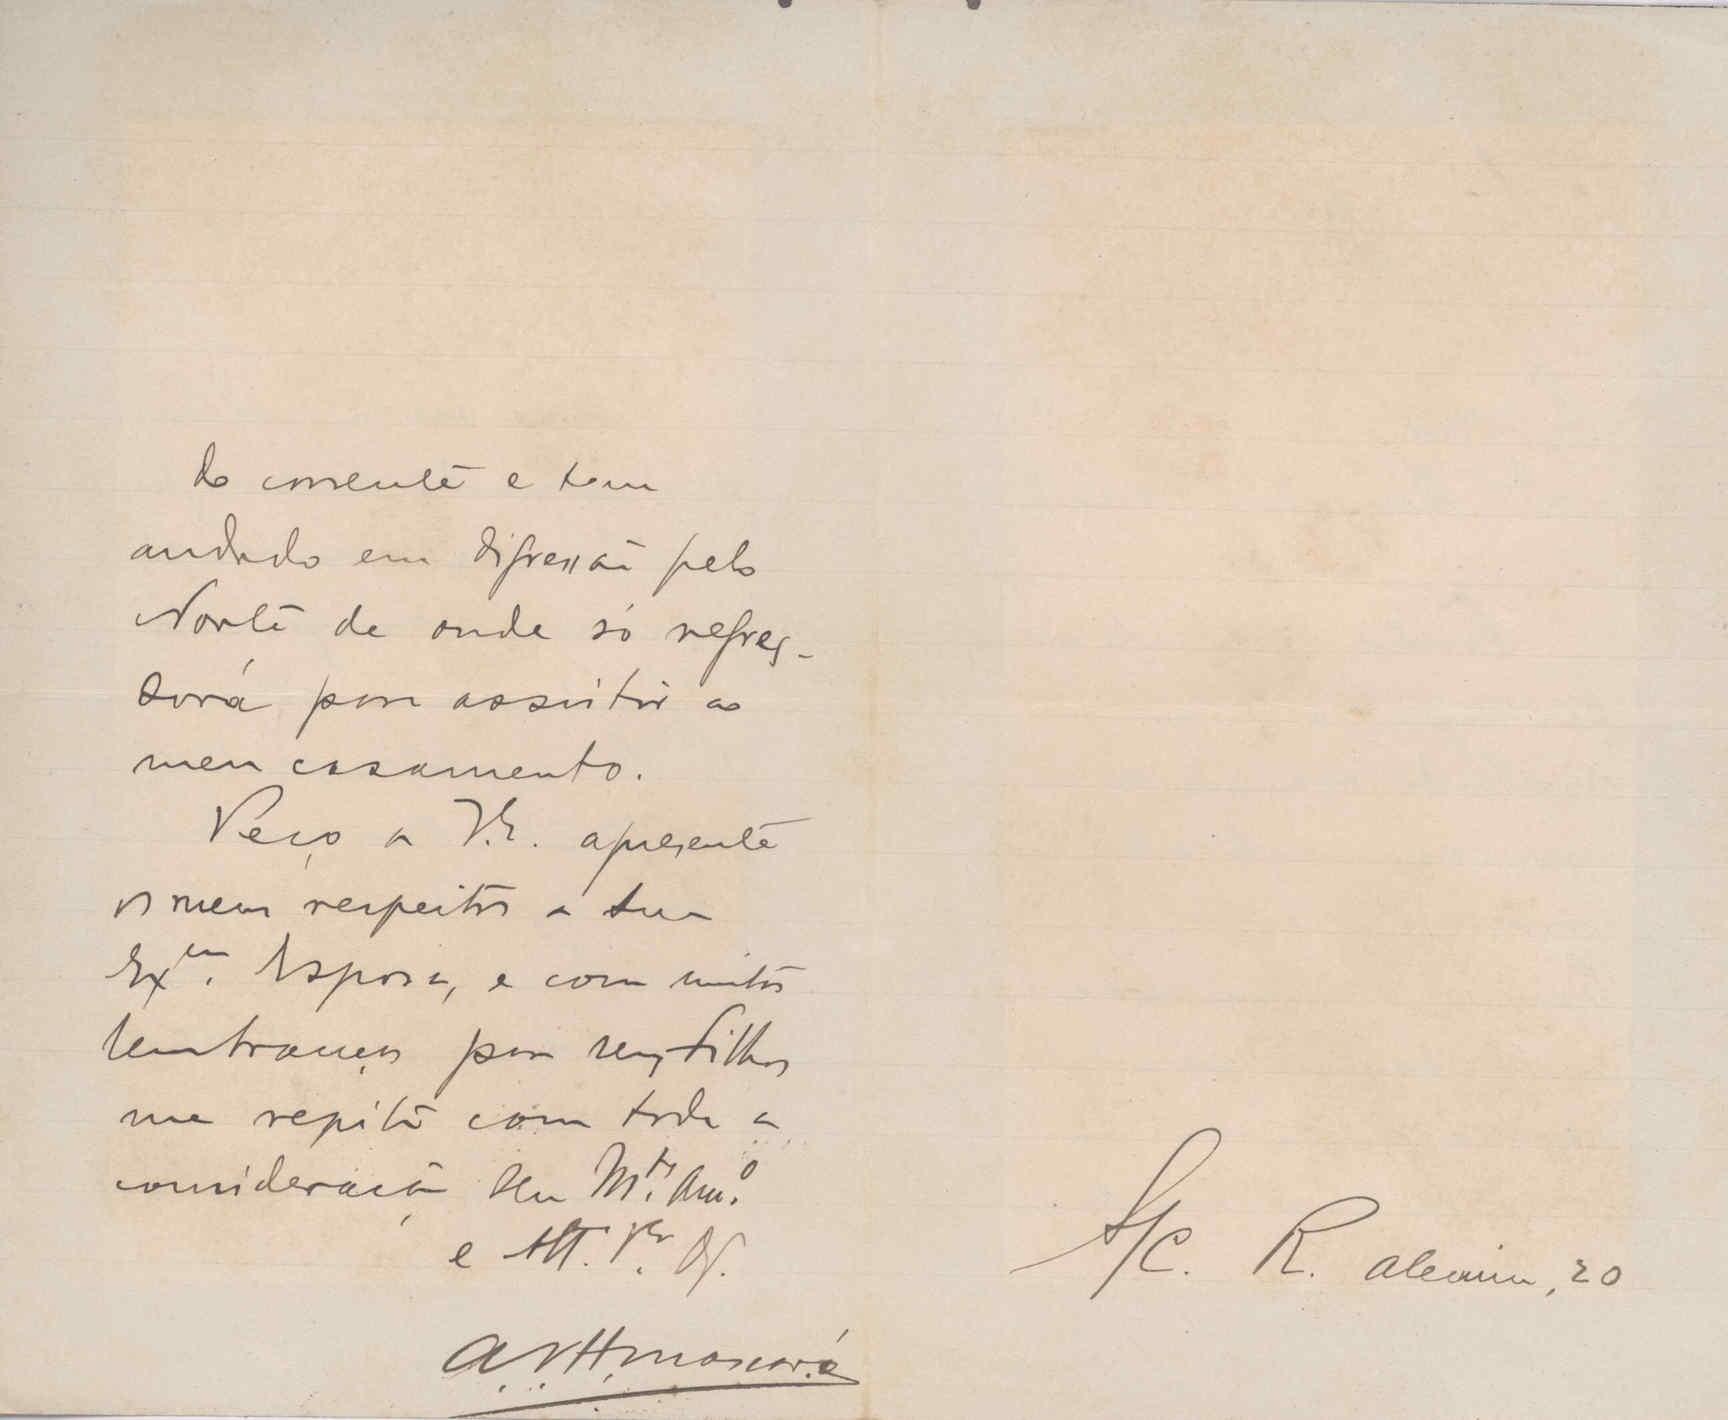 do corrente e tem
andado em digressão pelo
Norte de onde só regres-
sará para assistir ao
meu casamento.
Peço a V.E. apresente
os meus respeitos a sua
Exma. Esposa, e com muitas
lembranças para seus filhos
me repito com toda a
consideração seu Mto. Amo.
e Att. Vor. Of.
S/C. R. Alecrim, 20